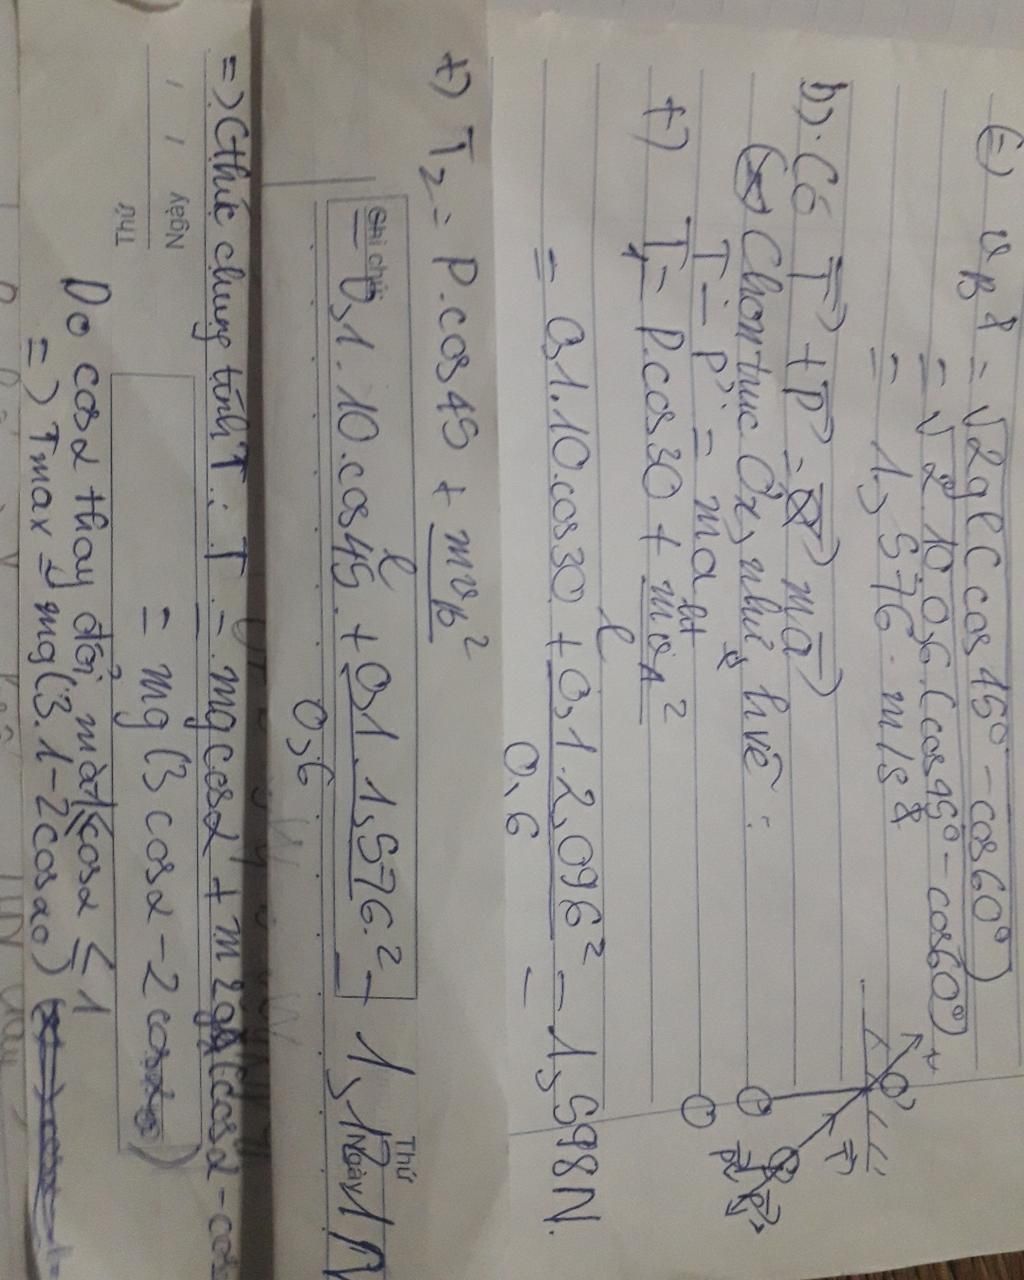 (=) vB = √2gl(cos 45° - cos60°)
= √2.10.0,6.(cos45° - cos60°)
= 1,576 m/s
b). Có T + P = ma
Chọn trục Ox, như hvẽ :
T - P' = ma ht
+) T1 = P.cos30 + mvA²
l
= 0,1.10.cos30 + 0,1.2,096² = 1,598N.
0,6
+) T2 = P.cos45 + mvB²
l
Ghi chú
= 0,1.10.cos45 + 0,1.1,576² =
0,6
Thứ
Ngày
=> Cthức chung tính T: T = mg cosα + m2g(cosα - cos
Ngày
Thứ
= mg(3cosα - 2cosα0)
Do cosα thay đổi, mà cosα ≤ 1
=> Tmax = mg(3.1 - 2cosα0)